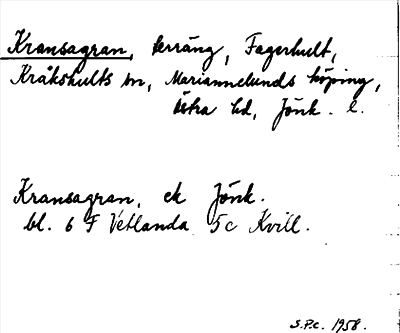 Kransagran, terräng, Fagerhult,
Kråkshults sn, Mariannelunds köping,
Östra hd, Jönk. l.
Kransagran, ek Jönk.
bl. 6 F Vetlanda 5c Kvill.
S.P.c. 1958.